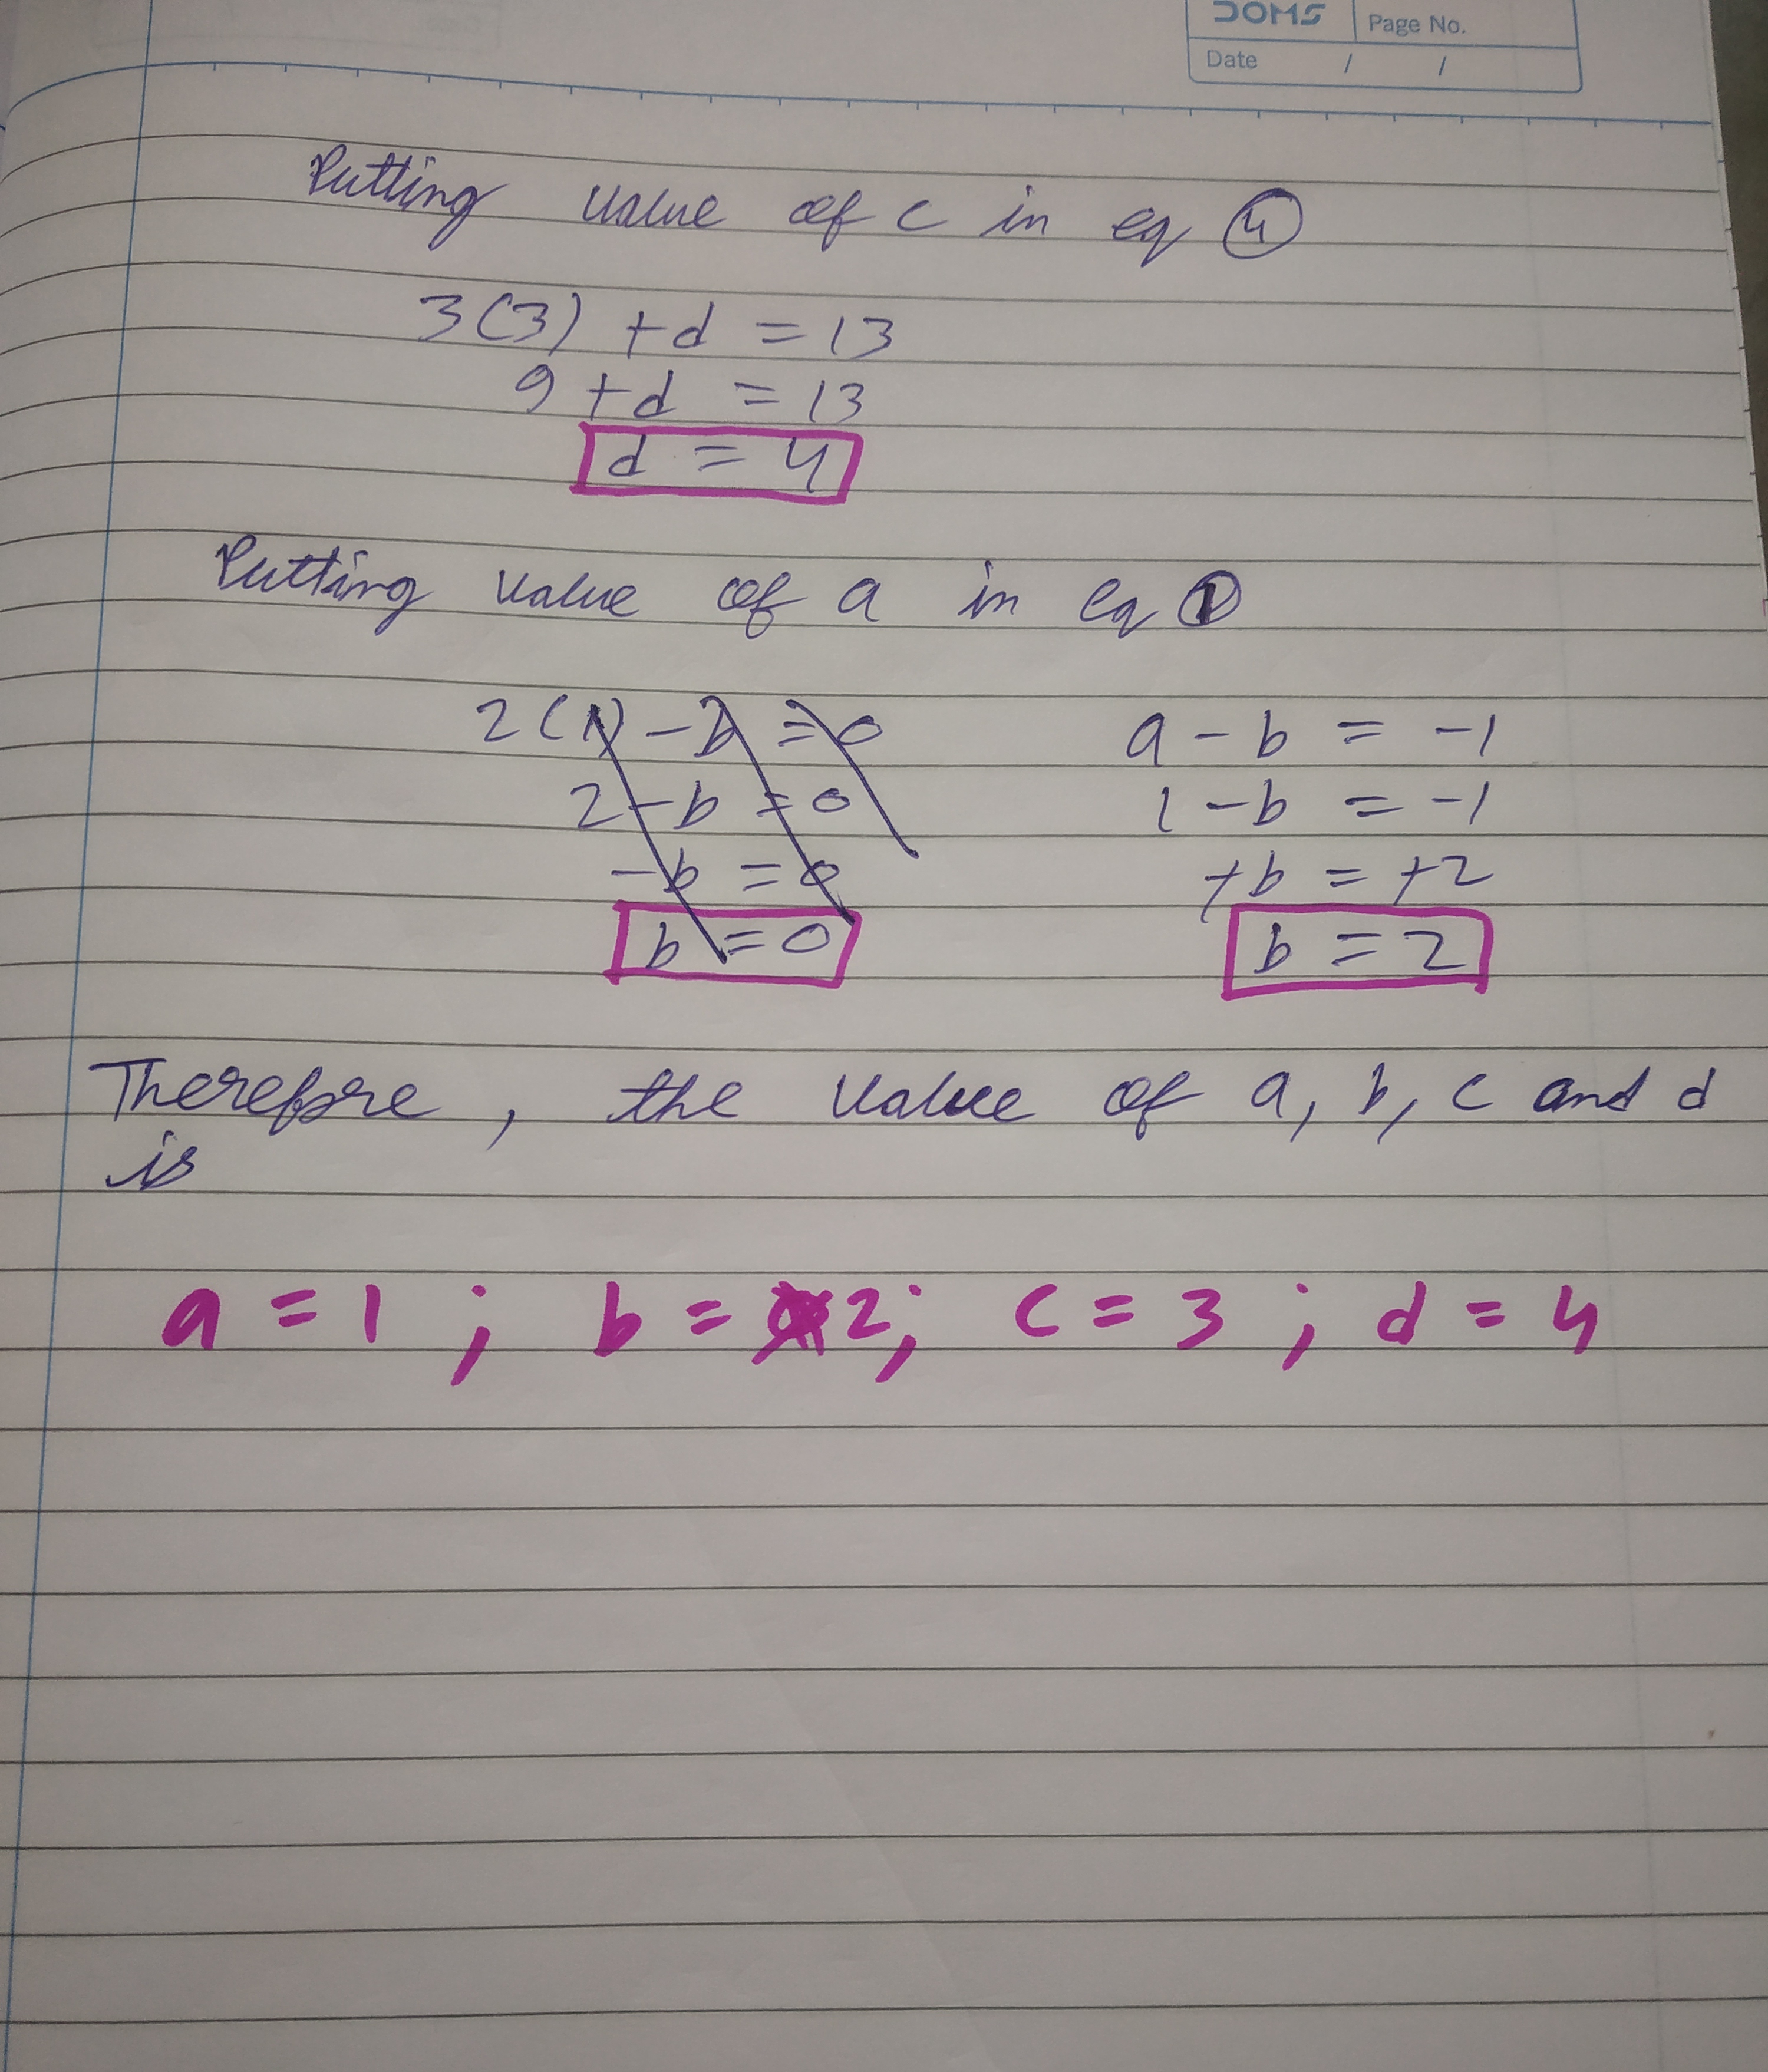 DOMS Page No.
Date / /
Putting value of c in eq ④
3(3) + d = 13
9 + d = 13
d = 4
Putting value of a in eq ①
2(1) - b = 0
2 - b = 0
- b = 0
b = 0
a - b = -1
1 - b = -1
+b = +2
b = 2
Therefore, the value of a, b, c and d
is
a = 1 ; b = 2; c = 3 ; d = 4